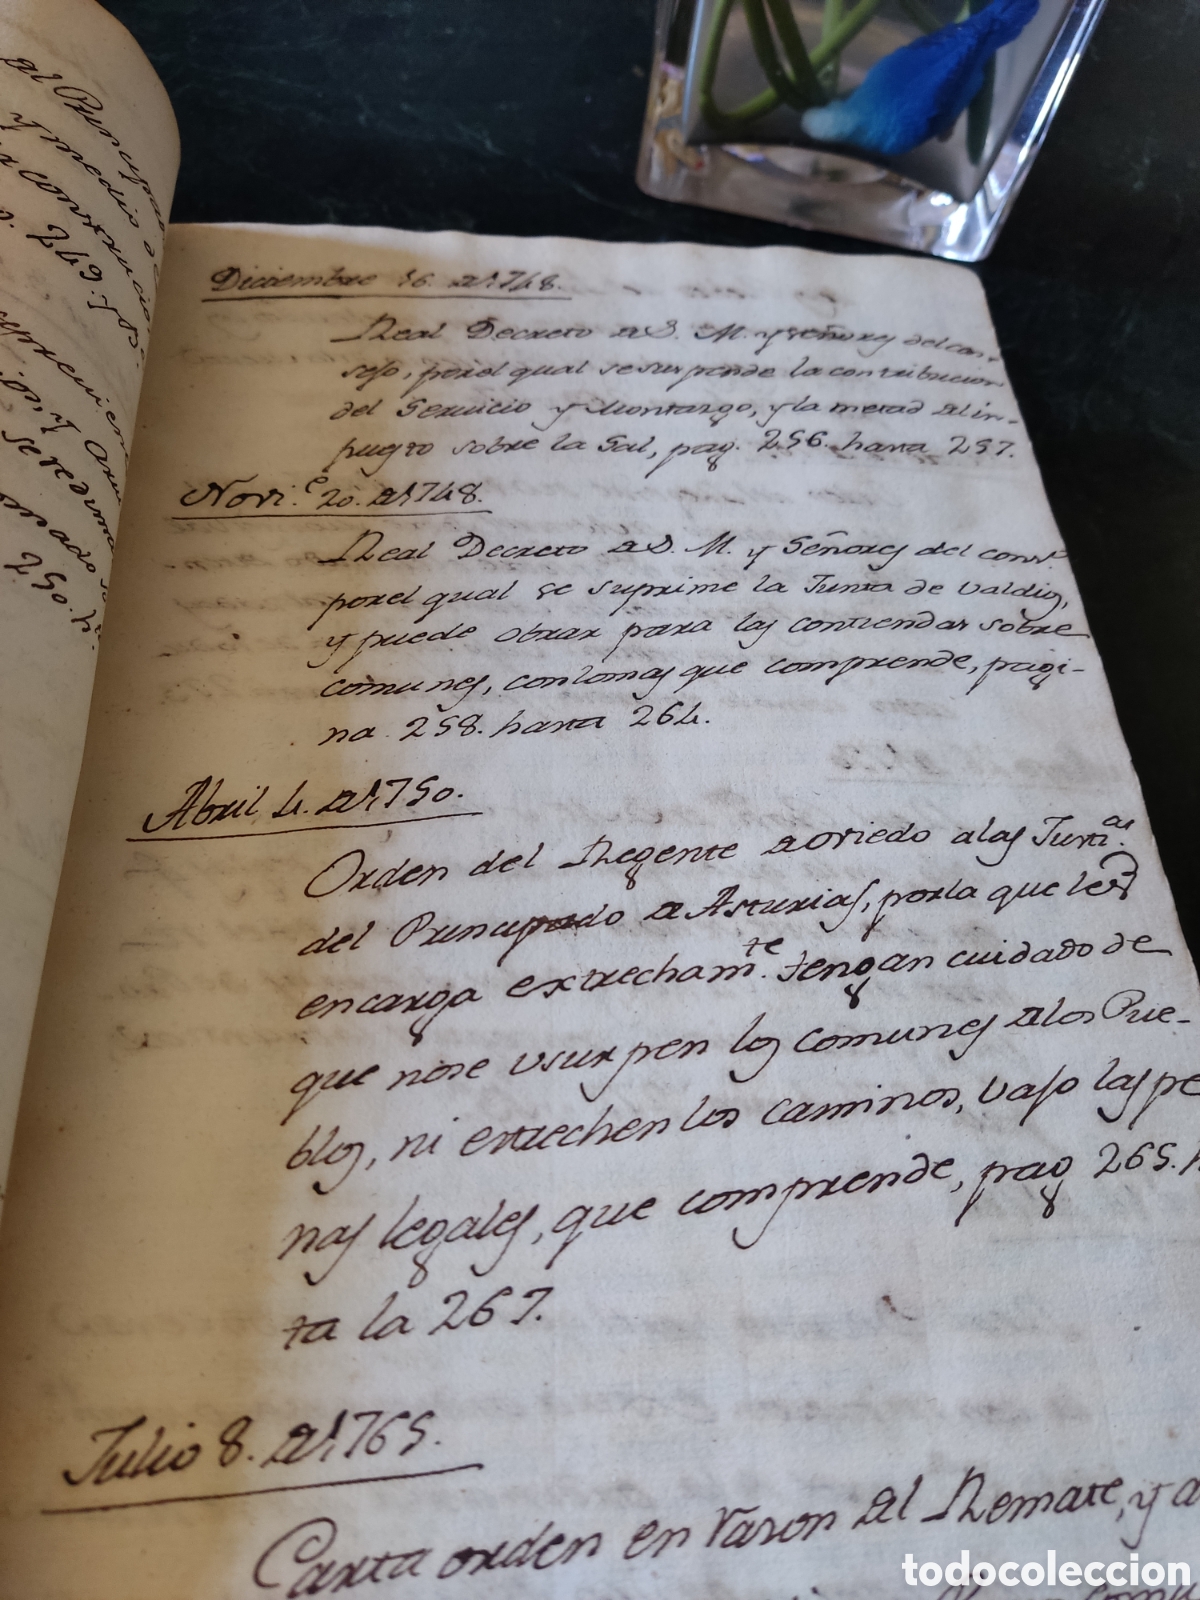 al Principa
y medio d
la contribucion
249. y
se redima
250. y
Diciembre 16. de 1748.
Real Decreto de S. M. y señores del con-
sejo, por el qual se suspende la contribucion
del Servicio y Montazgo, y la metad del in-
puesto sobre la Sal, pag. 256. hasta 257.
Novi.e 20. de 1748.
Real Decreto de S. M. y Señores del cons.o
por el qual se suprime la Junta de valdios,
y puede obrar para las contiendas sobre
comunes, con lo mas que comprende, pagi-
na 258. hasta 264.
Abril 4. de 1750.
Orden del Regente de Oviedo a las Justi.as
del Principado de Asturias, por la que les
encarga extrecham.te tengan cuidado de
que no se usurpen los comunes de los Pue-
blos, ni estrechen los caminos, vajo las pe
nas legales, que comprende, pag 265. h
ta la 267.
Julio 8. de 1765.
Carta orden en razon del Remate, y a
todocoleccion